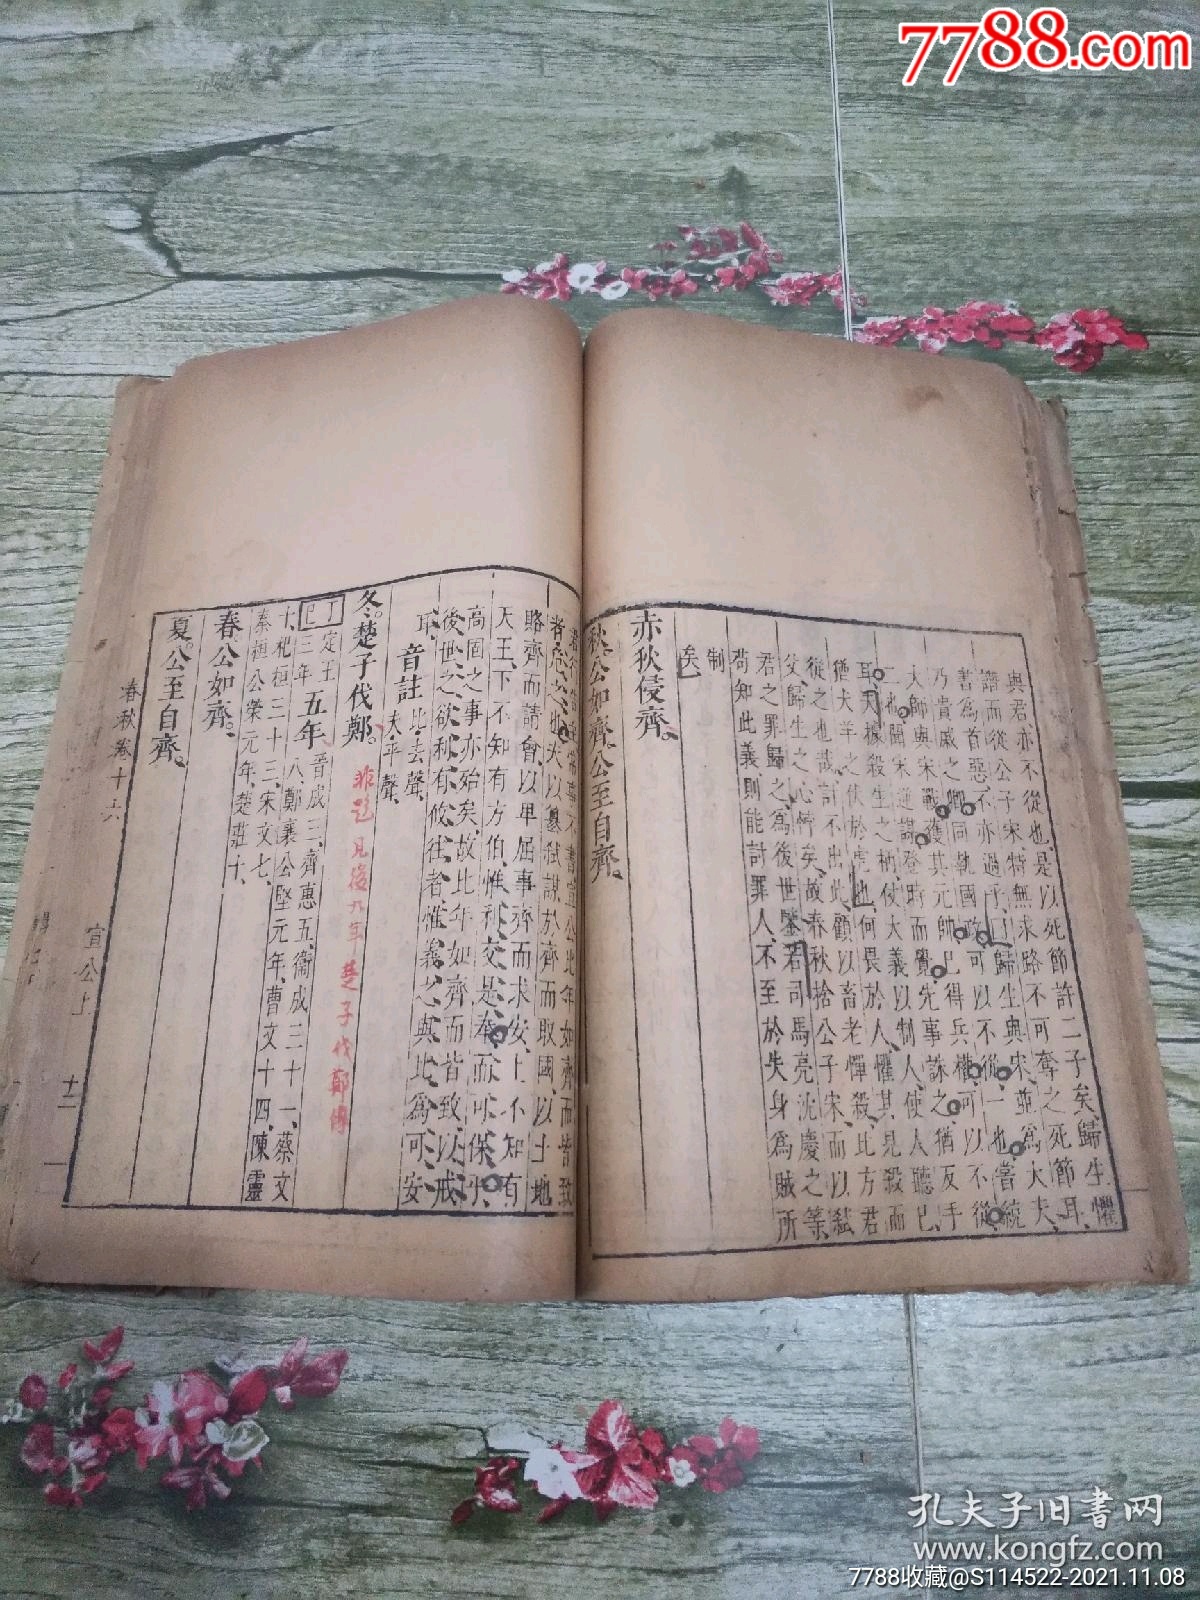 7788.com
與君亦不從也是以死節許二子矣歸生懼
譖而從公子宋特無求路不可奪之死節耳
書為首惡不亦過乎曰歸生與宋並為大夫
乃貴戚之卿同執國政可以不從一也嘗統
大師與宋戰獲其元帥已得兵權可以不從
二也聞宋逆謀登時而覺先事誅之猶反手
耳夫據殺生之柄仗大義以制人使人聽已
猶犬羊之伏於虎也何畏於人懼其見殺而
從之也哉計不出此顧以畜老憚殺比方君
父歸生之心悖矣故春秋捨公子宋而以弒
君之罪歸之為後世鑒若司馬亮沈慶之等
苟知此義則能討罪人不至於失身為賊所
制
矣
赤狄侵齊
秋公如齊公至自齊
者危之也夫以篡弒謀於齊而取國以土地
賂齊而請會以卑屈事齊而求安上不知有
天王下不知有方伯惟利交是奉而可保乎
高固之事亦殆矣故比年如齊而皆致以戒
後世之欲利有攸往者惟義之與比為可安
耳
音註比去聲
夫平聲
冬楚子伐鄭
非題見後九年楚子伐鄭傳
丁巳
定王三年
五年
晉成三齊惠五衛成三十一蔡文
八鄭襄公堅元年曹文十四陳靈
十杞桓三十三宋文七
秦桓公榮元年楚莊十
春公如齊
夏公至自齊
春秋卷十六
宣公上
十二
孔夫子旧书网
www.kongfz.com
7788收藏@S114522-2021.11.08